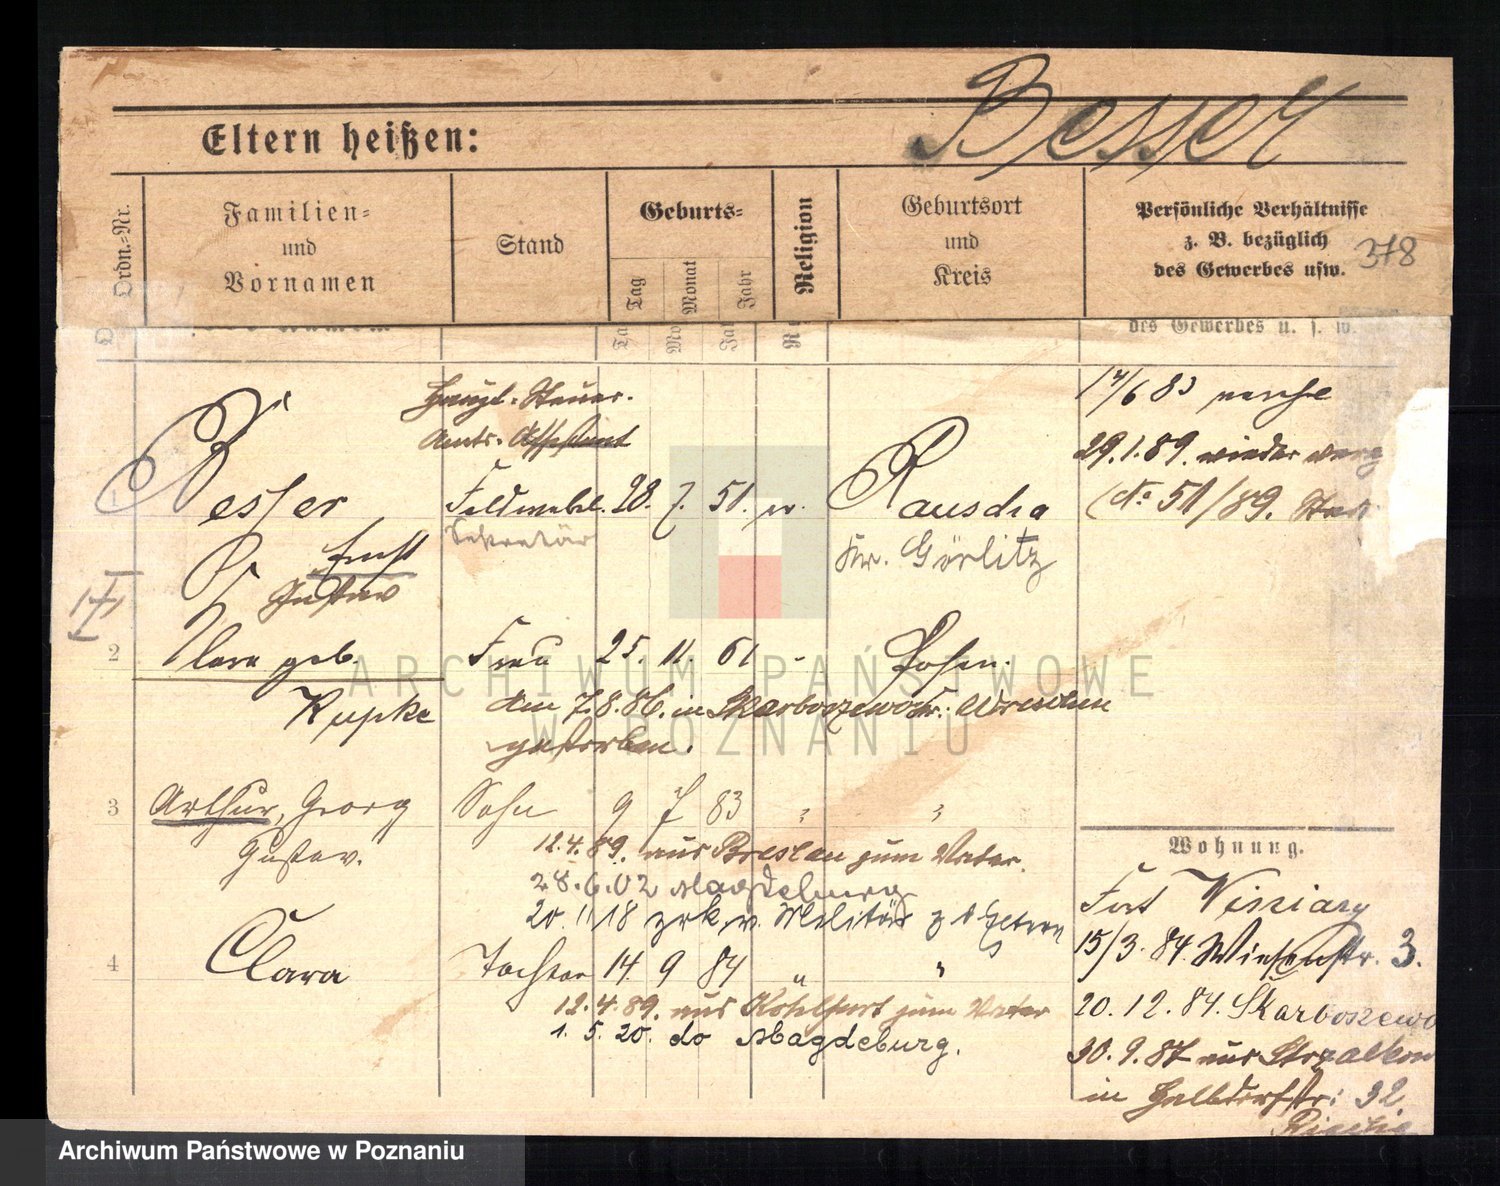 Besser
Eltern heißen:
Ordn.-Nr.
Familien-
und
Vornamen
Stand
Geburts-
Tag
Monat
Jahr
Religion
Geburtsort
und
Kreis
Persönliche Verhältnisse
z. B. bezüglich
des Gewerbes usw.
378
des Gewerbes u. s. w.
Haupt-Steuer-
Amts-Assistent
1 Besser Feldwebel. 28. 7. 51. ev. Rauscha
Sekretär Kr. Görlitz
Ernst
Gustav
17/6 83
29.1.89. wieder
No 51/89.
2 Clara geb. Frau 25. 11. 61 - Posen.
Kupke
Am 7.8.86. in Skarboszewo Kr. Wreschen
gestorben.
3 Arthur, Georg Sohn 9 7 83 " "
Gustav.
12.4.89. aus Breslau zum Vater.
28.6.02 Magdeburg
20.11 18 zrk. v. Militär z d Eltern
4 Clara Tochter 14 9 84 " "
12.4.89. aus Kohlfurt zum Vater
1. 5. 20. do Magdeburg.
Wohnung.
Fort Winiary
15/3. 84. Wiesenstr. 3.
20. 12. 84. Skarboszewo
30. 9. 87 aus Strzalkow
in Halbdorfstr: 32.
ARCHIWUM PAŃSTWOWE
W POZNANIU
Archiwum Państwowe w Poznaniu